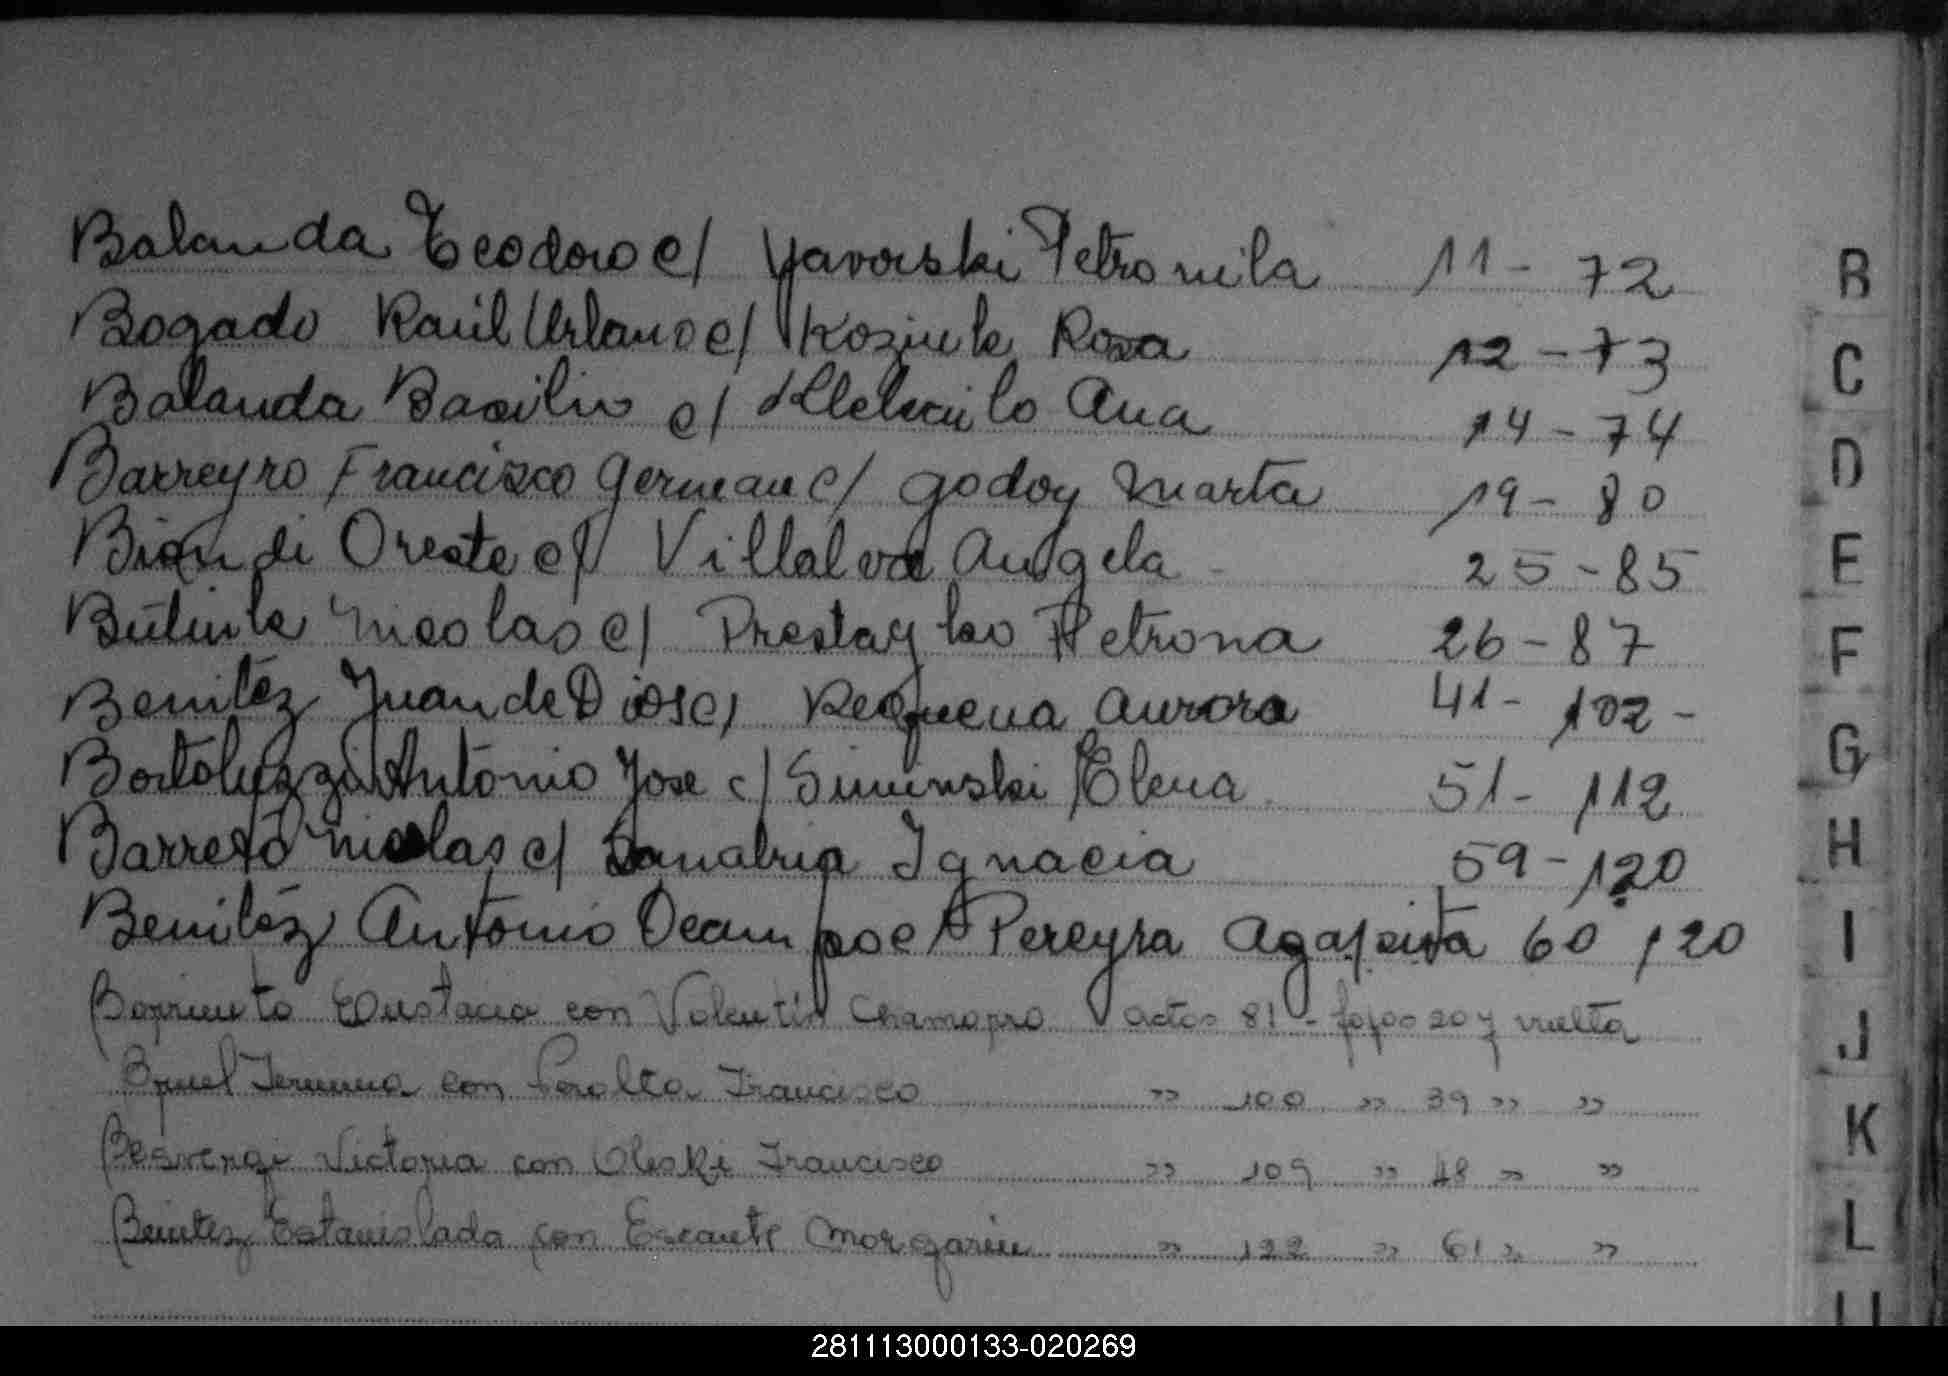 Balanda Teodoro c/ Yavorski Petronila 11 - 72
Bogado Raúl Urbano c/ Koziuk Rosa 12 - 73
Balanda Basilio c/ Ana 14 - 74
Barreyro Francisco German c/ Godoy Marta 19 - 80
Biondi Oreste c/ Villalva Angela 25 - 85
Nicolas c/ Petrona 26 - 87
Benitez Juan de Dios c/ Requena Aurora 41 - 102 -
Bortoluzzi Antonio Jose c/ Siminski Elena 51 - 112
Barreto Nicolas c/ Sanabria Ignacia 59 - 120
Benitez Antonio Ocampo c/ Pereyra Agapita 60 120
Eustacia con Valentín Chamorro actos 81 - fojas 20 y vuelta
con Peralta Francisco " 100 " 39 " "
Victoria con Oleski Francisco " 109 " 48 " "
Benitez Estanislada con Escante " 122 " 61 " "
B
C
D
E
F
G
H
I
J
K
L
281113000133-020269